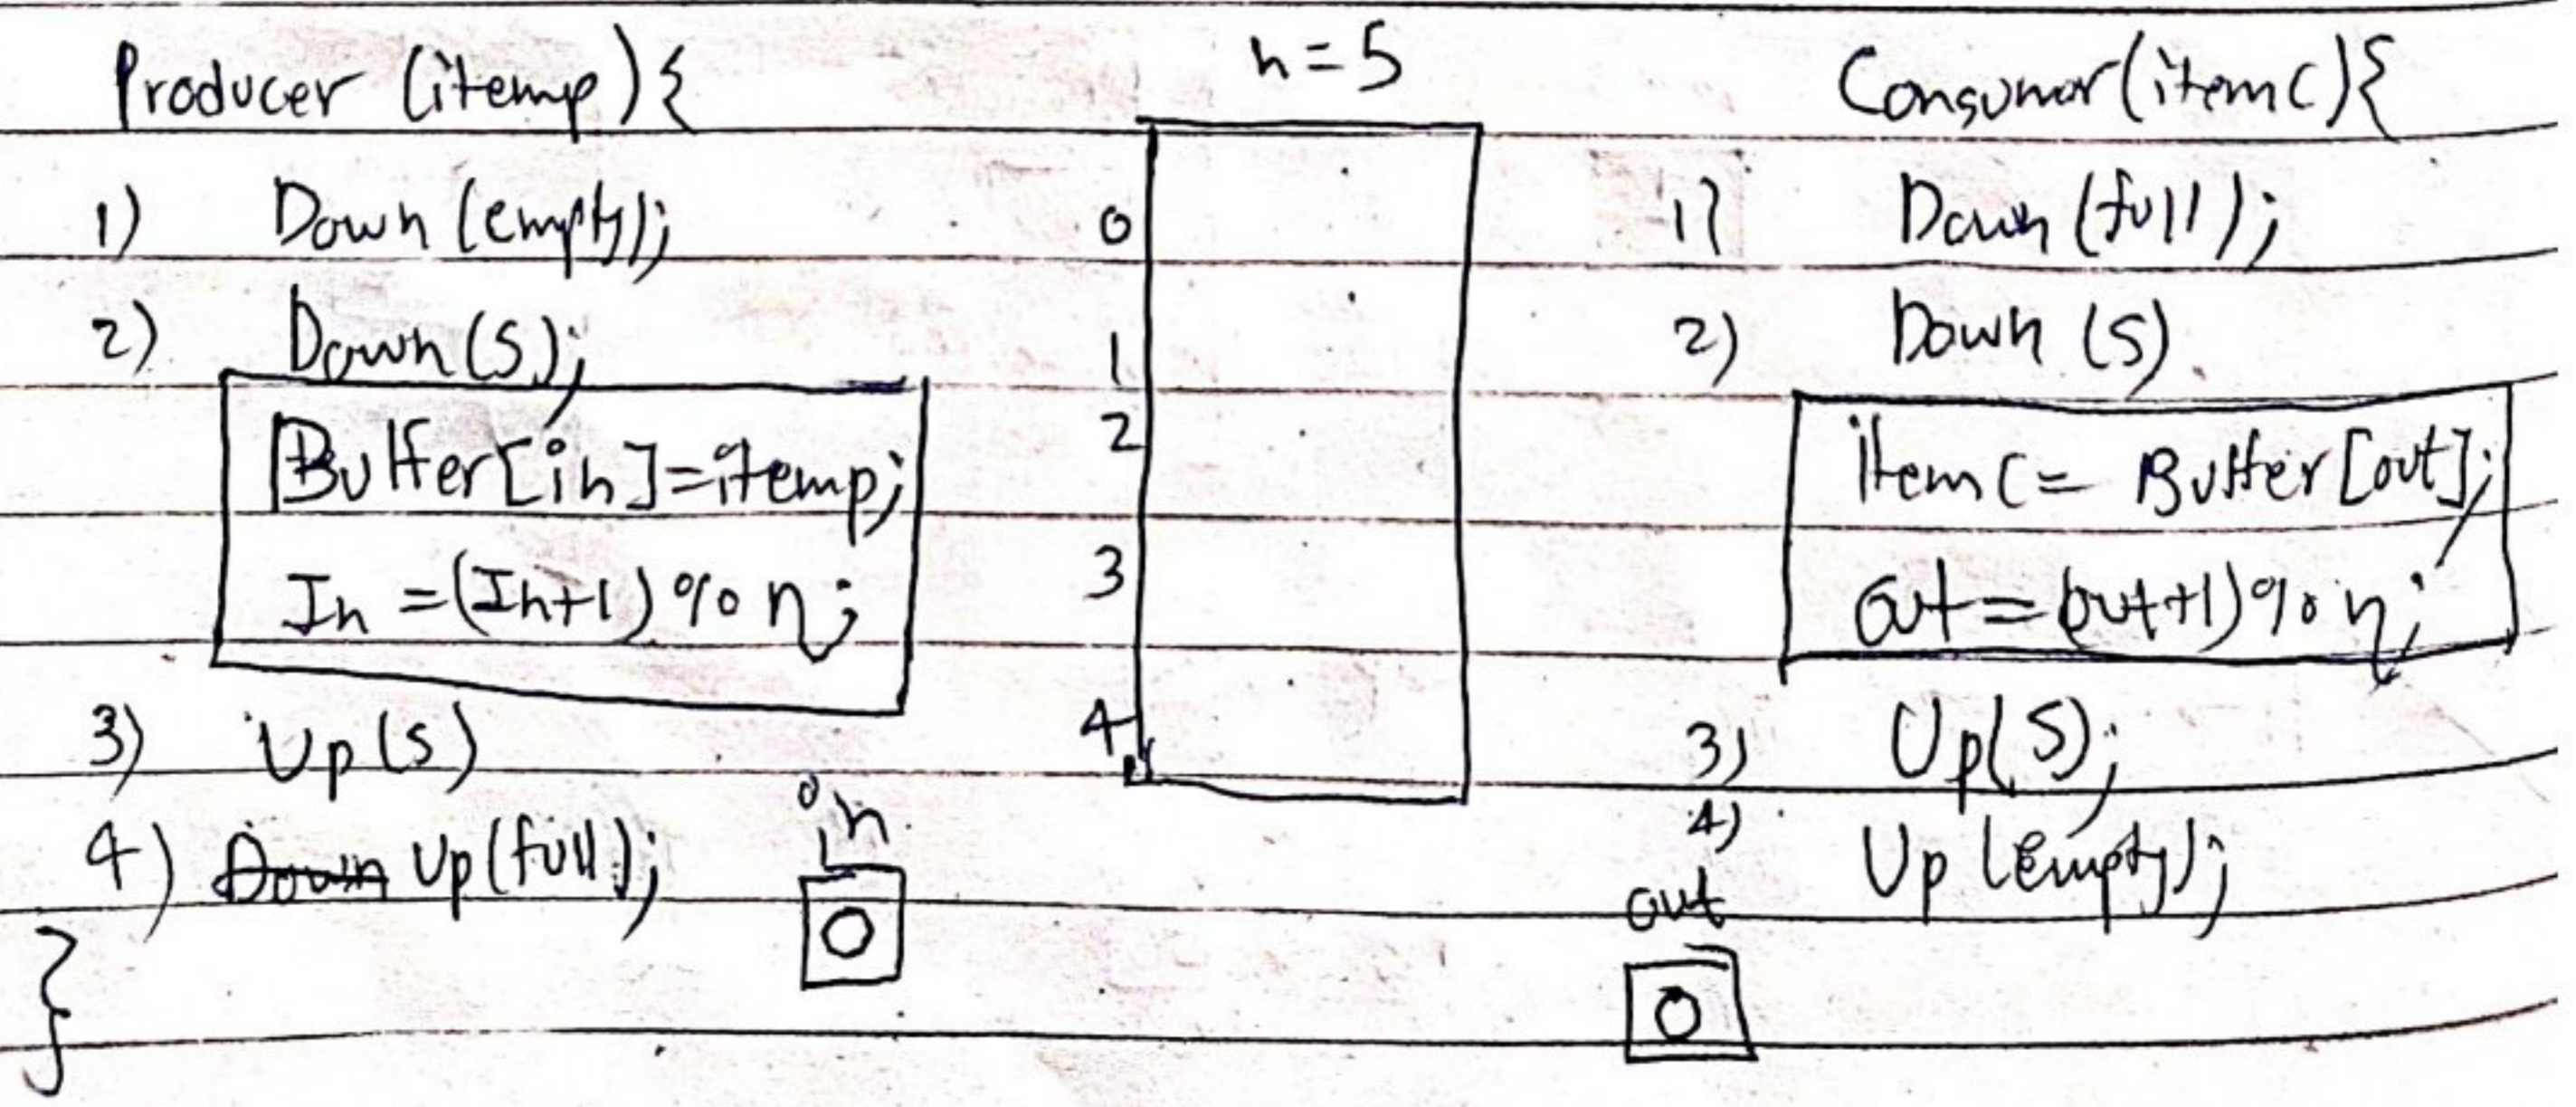 Producer (itemp) {
1) Down (empty);
2) Down (S);
Buffer[in]=itemp;
In = (In+1) % n;
3) Up (s)
4) Down Up (full);
}
n = 5
0
1
2
3
4
in
0
Consumor (itemc) {
1) Down (full);
2) Down (S)
itemc = Buffer [out];
out = (out+1) % n;
3) Up (S);
4) Up (empty);
out
0